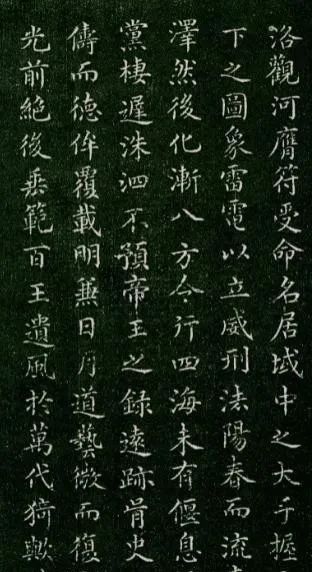 洛觀河膺符受命名居域中之大手握
下之圖象雷電以立威刑法陽春而流
澤然後化漸八方令行四海未有偃息
黨棲遲洙泗不預帝王之録遠跡胥史
儔而德侔覆載明兼日月道藝微而復
光前絕後垂範百王遺風於萬代猗歟